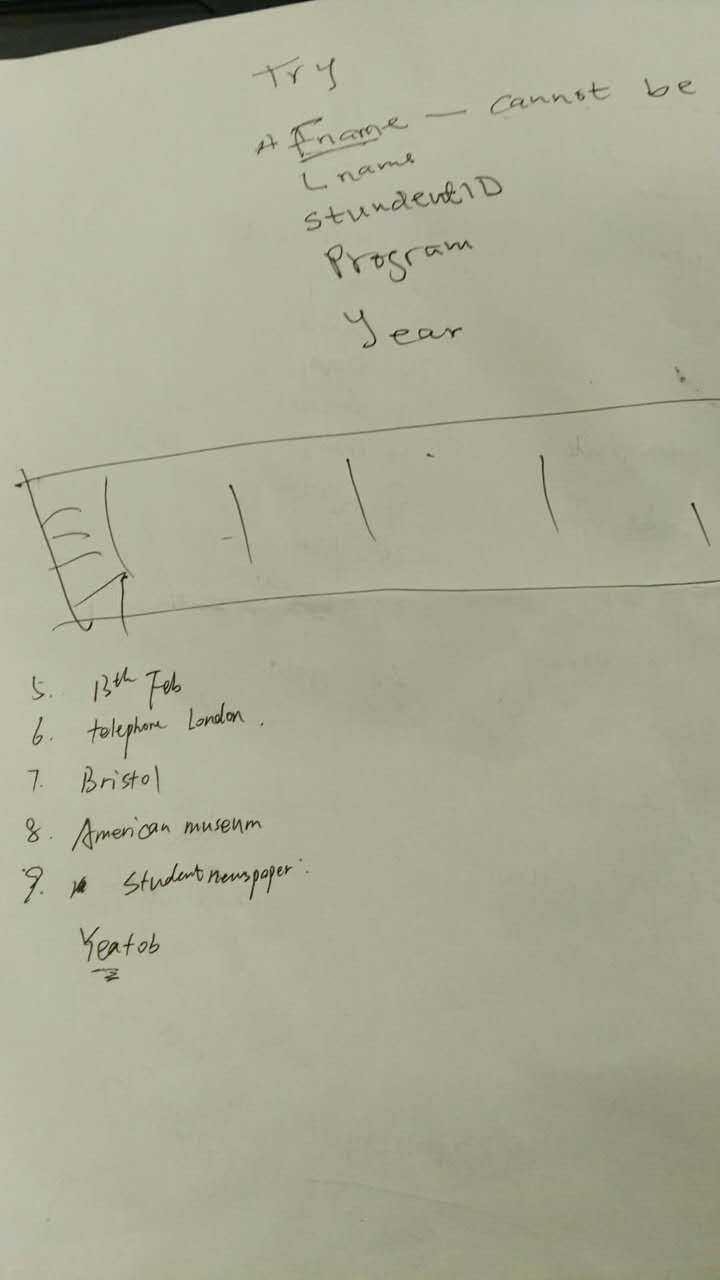 Try
* Fname — cannot be
Lname
StundentID
Program
Year
5. 13th Feb
6. telephone London.
7. Bristol
8. American museum
9. Student newspaper.